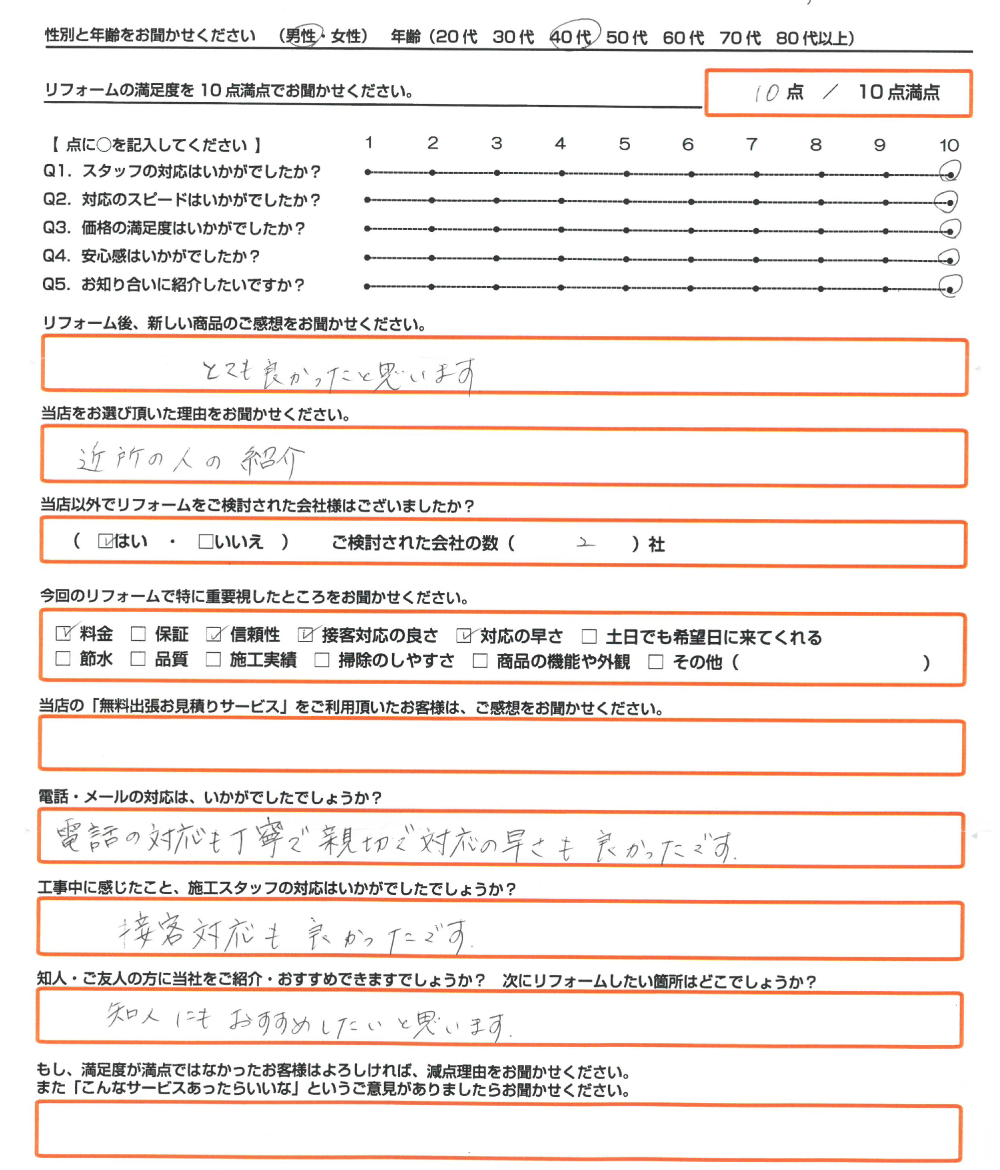 性別と年齢をお聞かせください （男性・女性） 年齢（20代 30代 40代 50代 60代 70代 80代以上）
リフォームの満足度を10点満点でお聞かせください。 10点 ／ 10点満点
【 点に○を記入してください 】 1 2 3 4 5 6 7 8 9 10
Q1. スタッフの対応はいかがでしたか？
Q2. 対応のスピードはいかがでしたか？
Q3. 価格の満足度はいかがでしたか？
Q4. 安心感はいかがでしたか？
Q5. お知り合いに紹介したいですか？
リフォーム後、新しい商品のご感想をお聞かせください。
とても良かったと思います
当店をお選び頂いた理由をお聞かせください。
近所の人の紹介
当店以外でリフォームをご検討された会社様はございましたか？
（ ☑はい ・ □いいえ ） ご検討された会社の数（ 2 ）社
今回のリフォームで特に重要視したところをお聞かせください。
☑ 料金 □ 保証 ☑ 信頼性 ☑ 接客対応の良さ ☑ 対応の早さ □ 土日でも希望日に来てくれる
□ 節水 □ 品質 □ 施工実績 □ 掃除のしやすさ □ 商品の機能や外観 □ その他（ ）
当店の「無料出張お見積りサービス」をご利用頂いたお客様は、ご感想をお聞かせください。
電話・メールの対応は、いかがでしたでしょうか？
電話の対応も丁寧で親切で対応の早さも良かったです.
工事中に感じたこと、施工スタッフの対応はいかがでしたでしょうか？
接客対応も良かったです.
知人・ご友人の方に当社をご紹介・おすすめできますでしょうか？ 次にリフォームしたい箇所はどこでしょうか？
知人にもおすすめしたいと思います.
もし、満足度が満点ではなかったお客様はよろしければ、減点理由をお聞かせください。
また「こんなサービスあったらいいな」というご意見がありましたらお聞かせください。